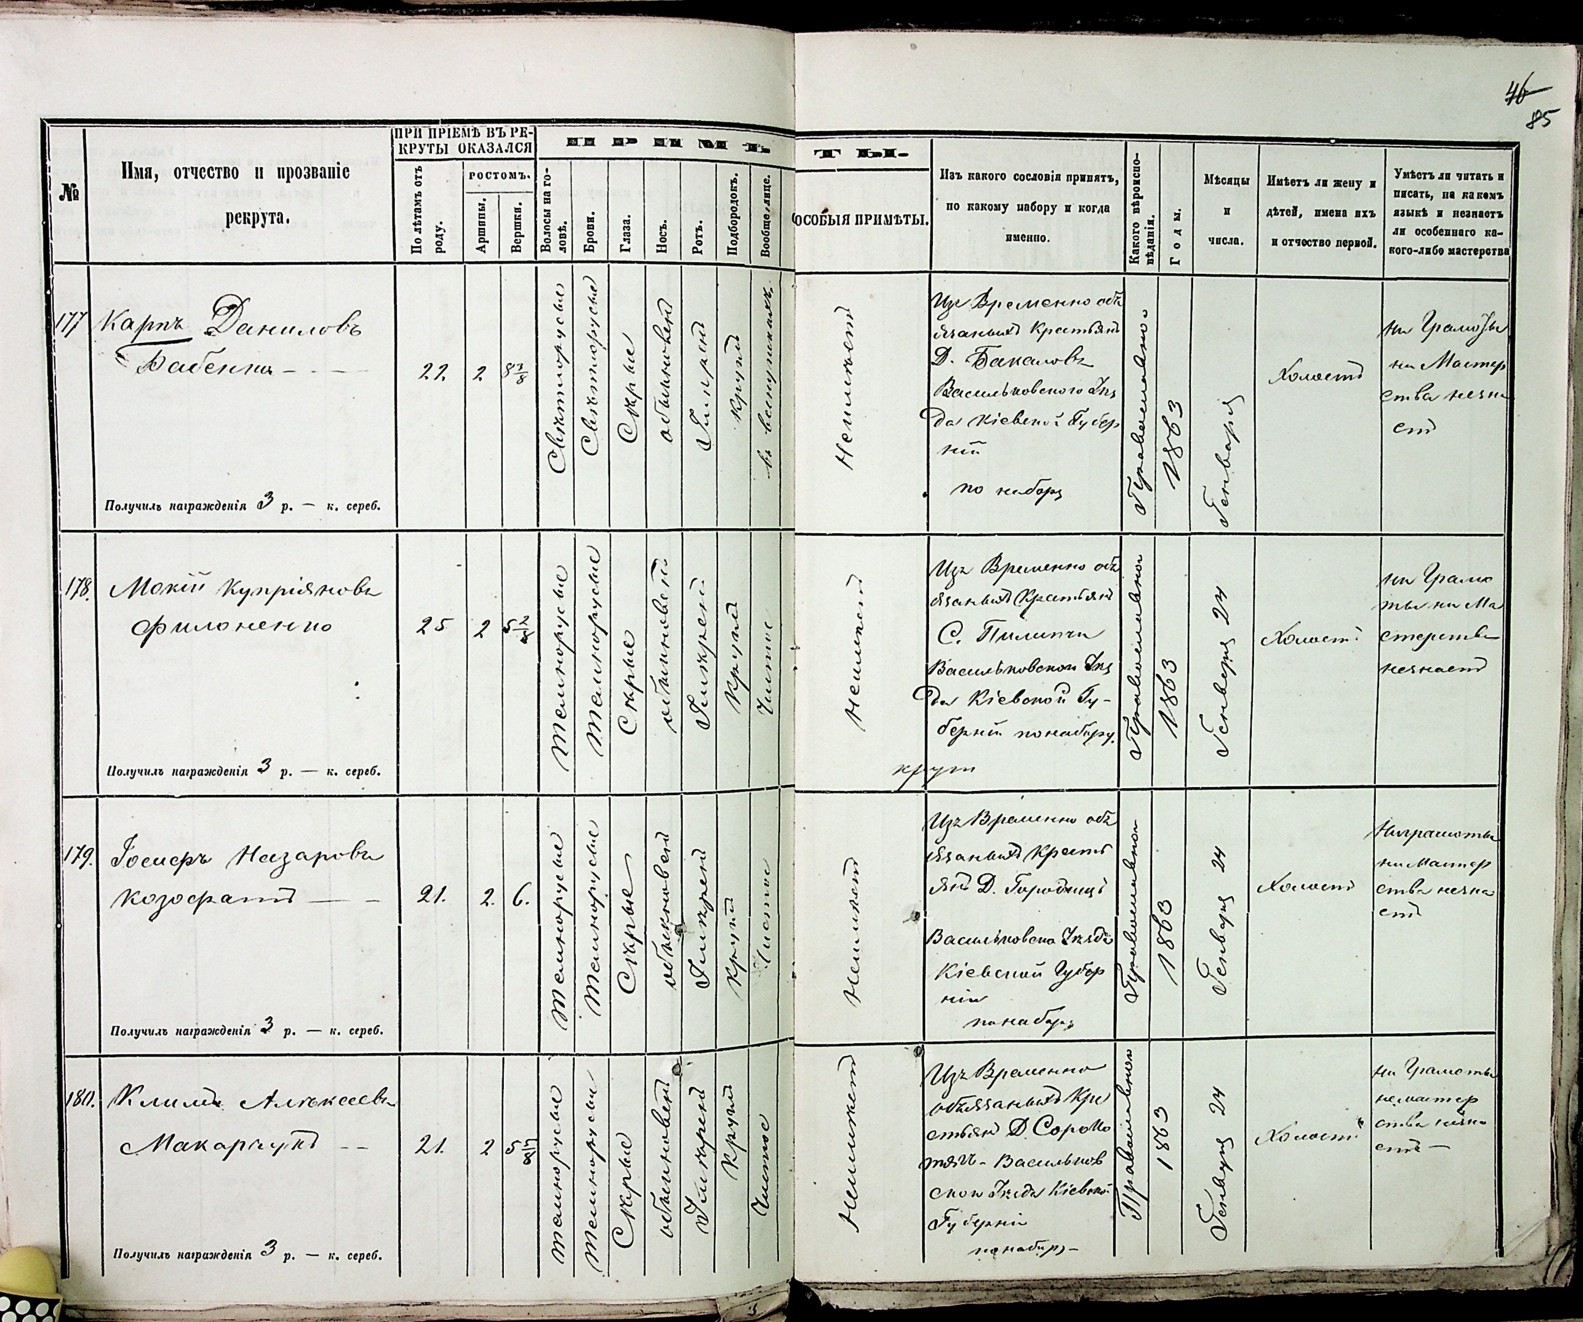 46
85
№
Имя, отчество и прозваніе
рекрута.
ПРИ ПРІЕМѢ ВЪ РЕ-
КРУТЫ ОКАЗАЛСЯ
По лѣтамъ отъ
роду.
РОСТОМЪ.
Аршины.
Вершки.
ПРИМѢТЫ.
Волосы на го-
ловѣ.
Брови.
Глаза.
Носъ.
Ротъ.
Подбородокъ.
Вообще лице.
ОСОБЫЯ ПРИМѢТЫ.
Изъ какого сословія принятъ,
по какому набору и когда
именно.
Какого вѣроиспо-
вѣданія.
Годы.
Мѣсяцы
и
числа.
Имѣетъ ли жену и
дѣтей, имена ихъ
и отчество первой.
Умѣетъ ли читать и
писать, на какомъ
языкѣ и незнаетъ
ли особеннаго ка-
кого-либо мастерства
177
Карпъ Даниловъ
Бабенко
22.
2
8 3/8
Свѣтлорусые
Свѣтлорусые
Сѣрые
обыкновен
Умѣрен
круглъ
Неимѣетъ
Изъ Временно обѣ
язаныхъ Крестьянъ
Д. Бакаловъ
Васильковского Уѣз
да Кіевской Губер
ніи
по набору
Православно
1863
Генваря
Холостъ
ни Грамоты
ни Мастер
ства незна
етъ
Получилъ награжденія 3 р. — к. сереб.
178.
Мокій Купріяновъ
Филоненко
25
2
5 2/8
Темнорусые
Темнорусые
Сѣрые
обыкновен
Умѣрен
Круглъ
Чистое
Неимѣетъ
Изъ Временно обѣ
язаныхъ Крестьян
С. Пилипчи
Васильковского Уѣз
да Кіевской Гу-
берніи по набору.
Православного
1863
Генваря 24
Холостъ
ни Грамо
ты ни Ма
стерства
незнаетъ
Получилъ награжденія 3 р. — к. сереб.
179.
Назарова
21.
2.
6.
Темнорусые
Темнорусые
Сѣрые
обыкновен
Умѣрен
круглъ
Чистое
Неимѣетъ
Изъ Временно обѣ
язаныхъ Кресть
янъ Д. Городищъ
Васильковско Уѣзда
Кіевской Губер
ніи
по набору
Православного
1863
Генваря 24
Холостъ
Ниграмоты
ни Мастер
ства незна
етъ
Получилъ награжденія 3 р. — к. сереб.
180.
Климъ Алексеевъ
Макарчукъ
21.
2
Темнорусые
Темнорусые
Сѣрые
обыкновен
Умѣрен
Круглъ
Чистое
Неимѣетъ
Изъ Временно
обязаныхъ Кре
стьян Д. Сороко
тягъ - Васильков
ского Уѣзда Кіевской
Губерніи
по набору
Православного
1863
Генваря 24
Холостъ
ни Грамоты
немастер
ства незна
етъ
Получилъ награжденія 3 р. — к. сереб.